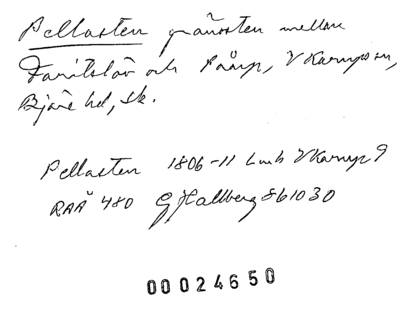 Pellasten gränsten mellan
Faritslöv och Påarp, V Karups sn,
Bjäre hd, Sk.
Pellasten 1806-11 Lmh V Karup 9
RAÄ 480 G Hallberg 861030
00024650